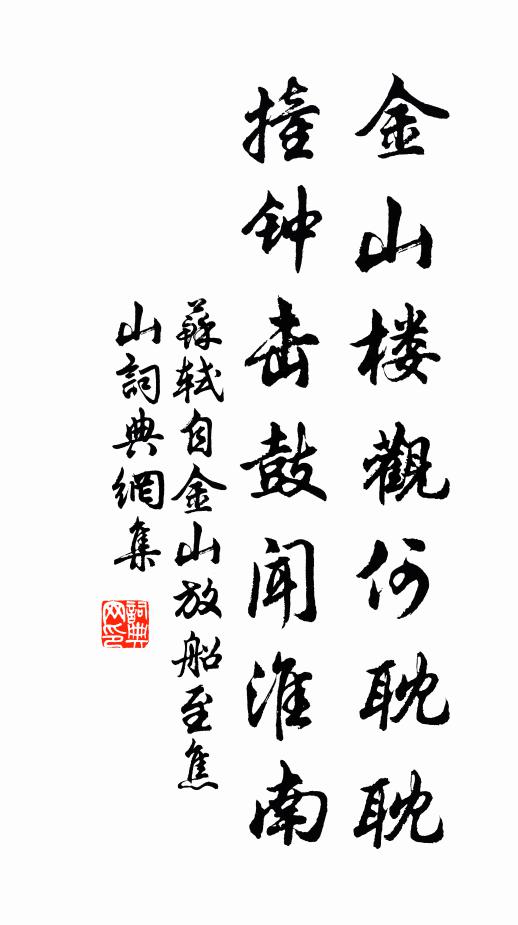 金山楼觀何耽耽
撞钟击鼓闻淮南
蘇軾自金山放船至焦
山詞典網集
詞典
网印